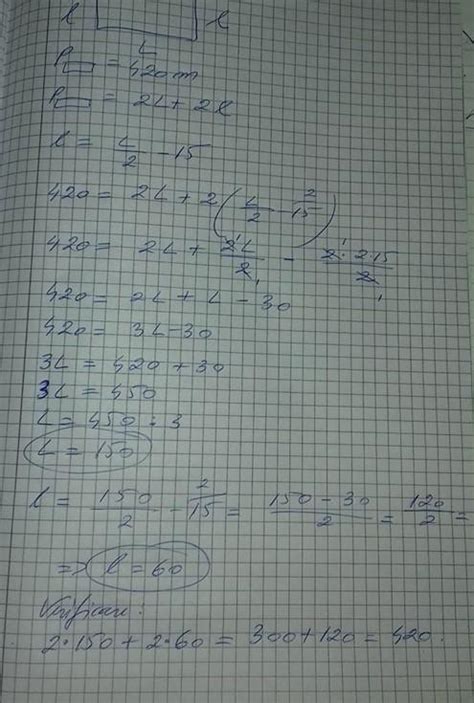 l l
L
P▭ = 420 m
P▭ = 2L + 2l
l = L/2 - 15
420 = 2L + 2(L/2 - ²⁄15)
420 = 2L + 2L/2 - 2·2·15/2
420 = 2L + L - 30
420 = 3L - 30
3L = 420 + 30
3L = 450
L = 450 : 3
L = 150
l = 150/2 - ²⁄15 = (150 - 30)/2 = 120/2 =
=> l = 60
Verificare:
2·150 + 2·60 = 300 + 120 = 420.